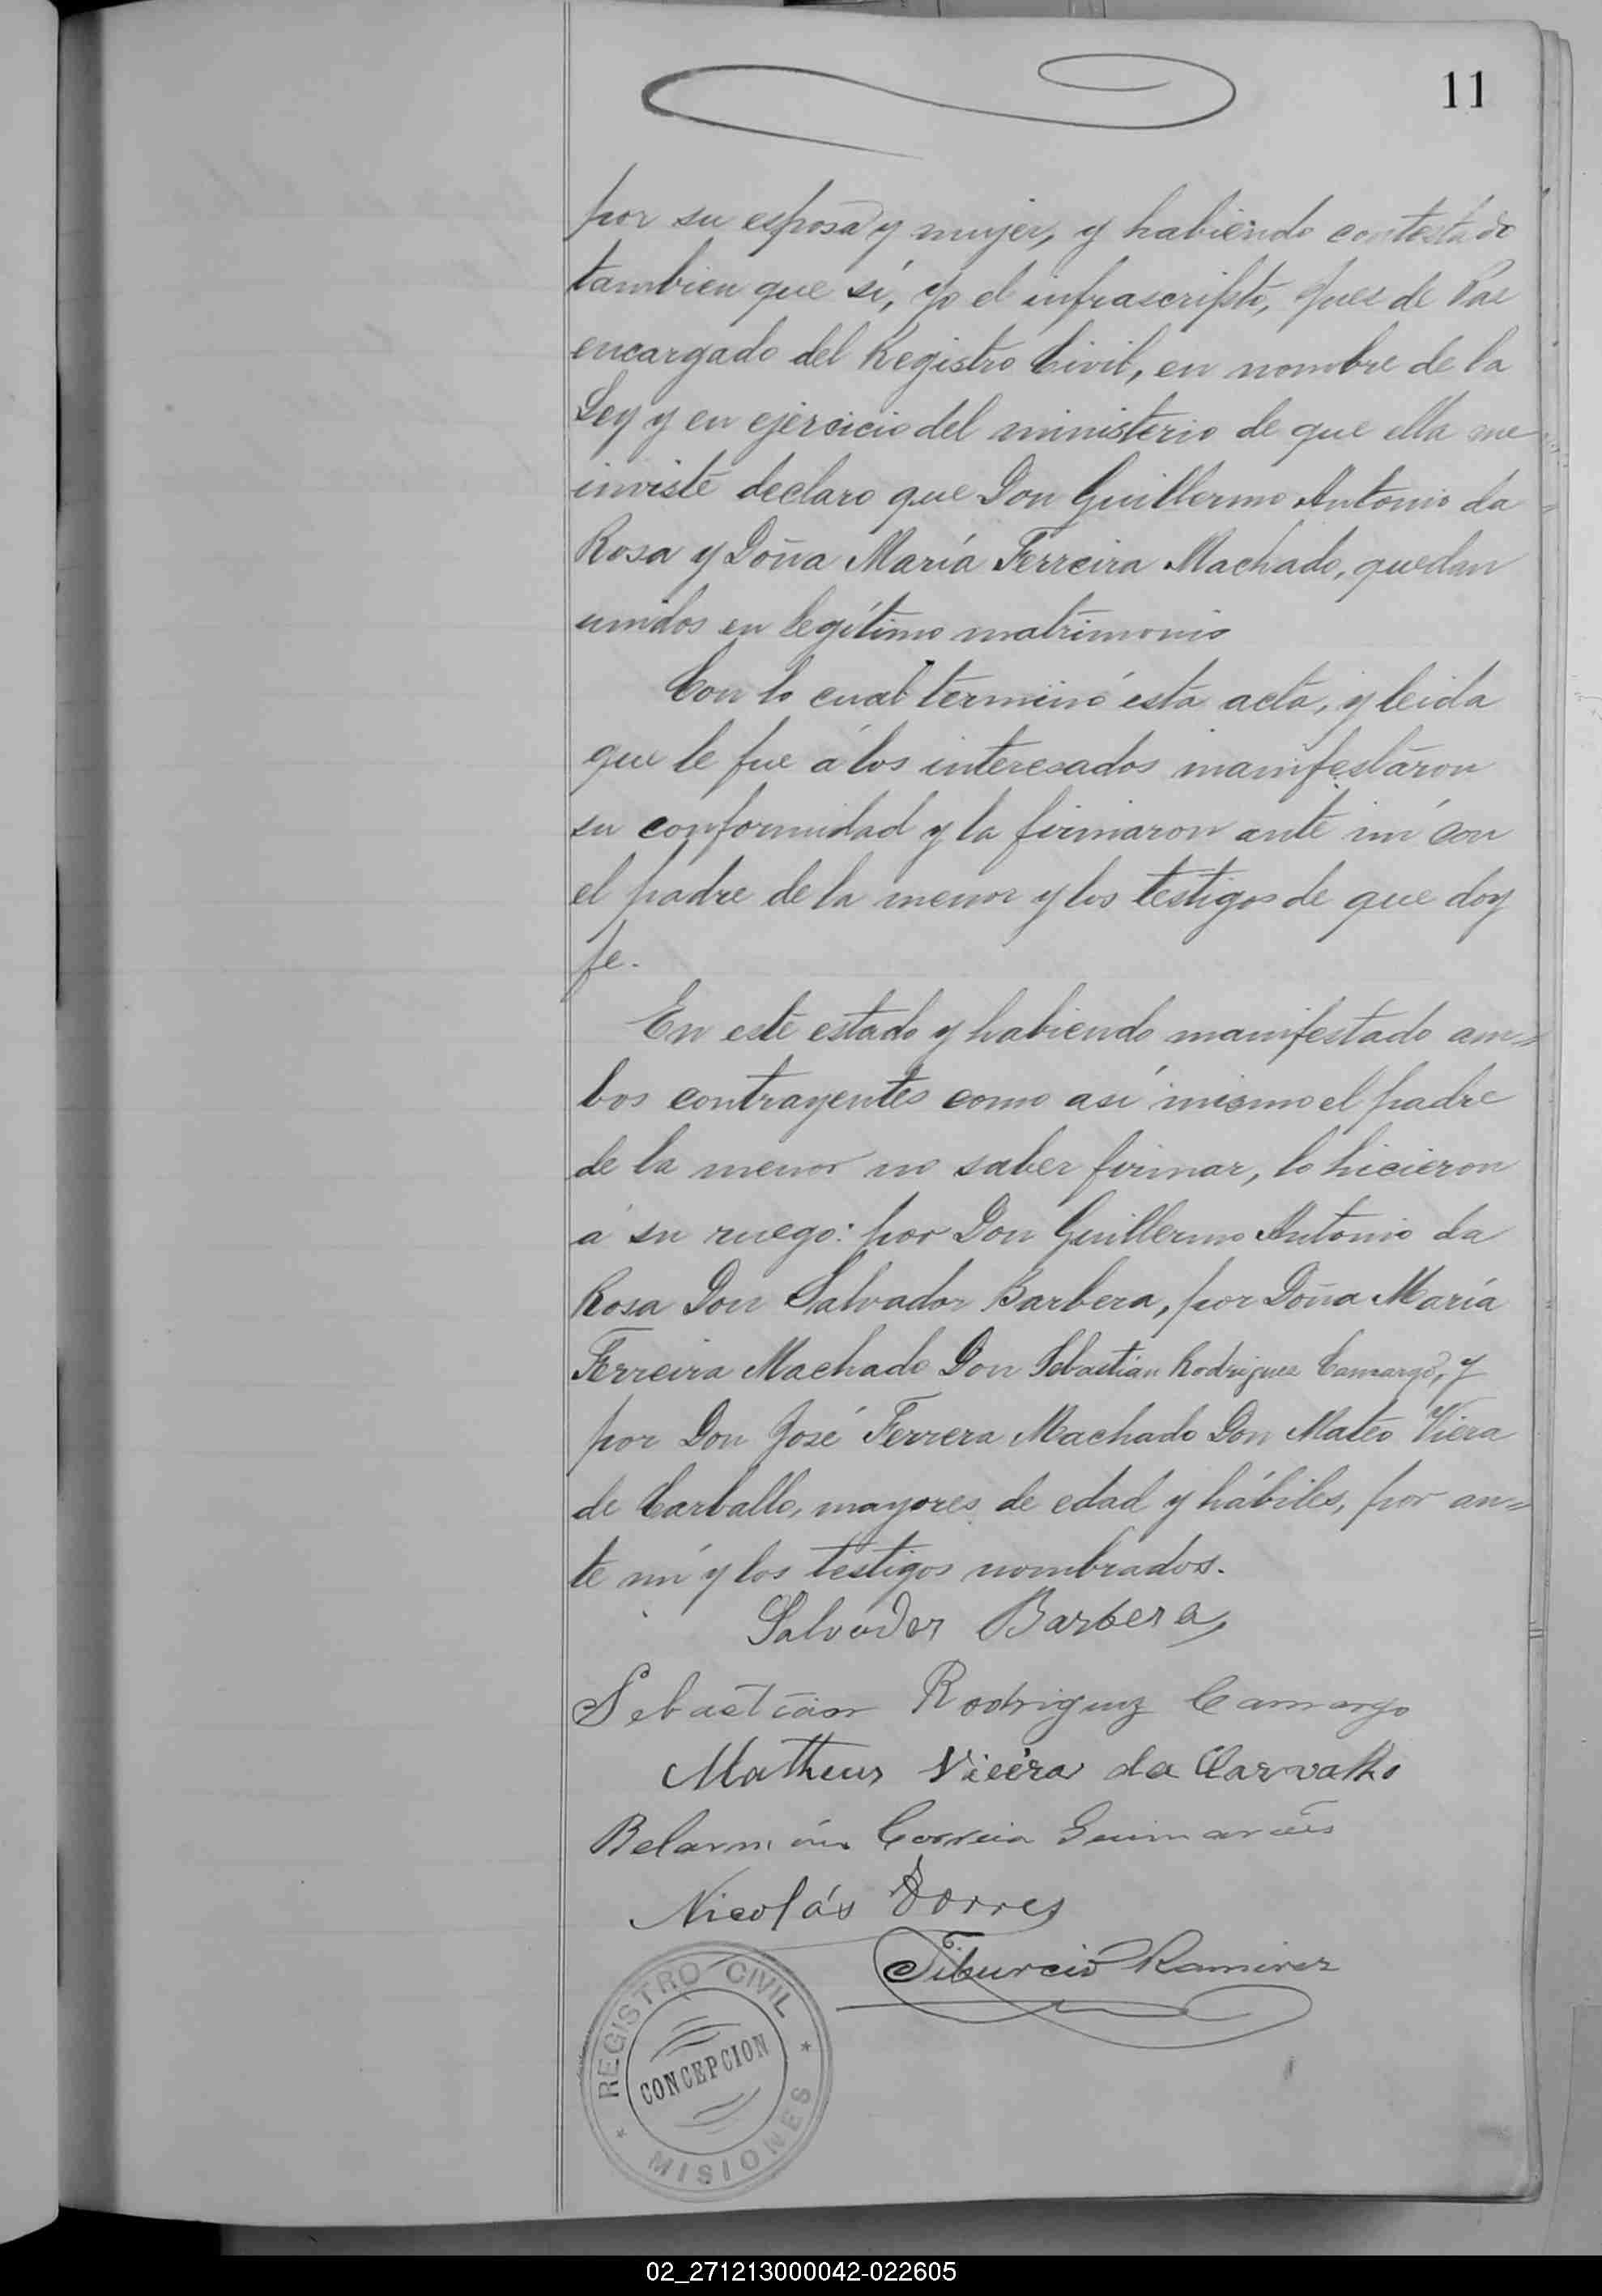 11
por su esposa y mujer, y habiendo contestado
tambien que sí, yo el infrascripto, Juez de Paz
encargado del Registro Civil, en nombre de la
Ley y en ejercicio del ministerio de que ella me
inviste declaro que Don Guillermo Antonio da
Rosa y Doña María Ferreira Machado, quedan
unidos en legítimo matrimonio
Con lo cual terminó esta acta, y leida
que le fue á los interesados manifestaron
su conformidad y la firmaron ante mí con
el padre de la menor y los testigos de que doy
fe.
En este estado y habiendo manifestado am=
bos contrayentes como así mismo el padre
de la menor no saber firmar, lo hicieron
á su ruego: por Don Guillermo Antonio da
Rosa Don Salvador Barbera, por Doña María
Ferreira Machado Don Sebastian Rodriguez Camargo, y
por Don José Ferrera Machado Don Mateo Viera
de Carballo, mayores de edad y hábiles, por an=
te mí y los testigos nombrados.
Salvador Barbera
Sebastian Rodriguez Camargo
Matheus Vieira da Carvalho
Belarmino Correia Guimarães
Nicolás Torres
Tiburcio Ramirez
REGISTRO CIVIL
CONCEPCION
MISIONES
02_271213000042-022605